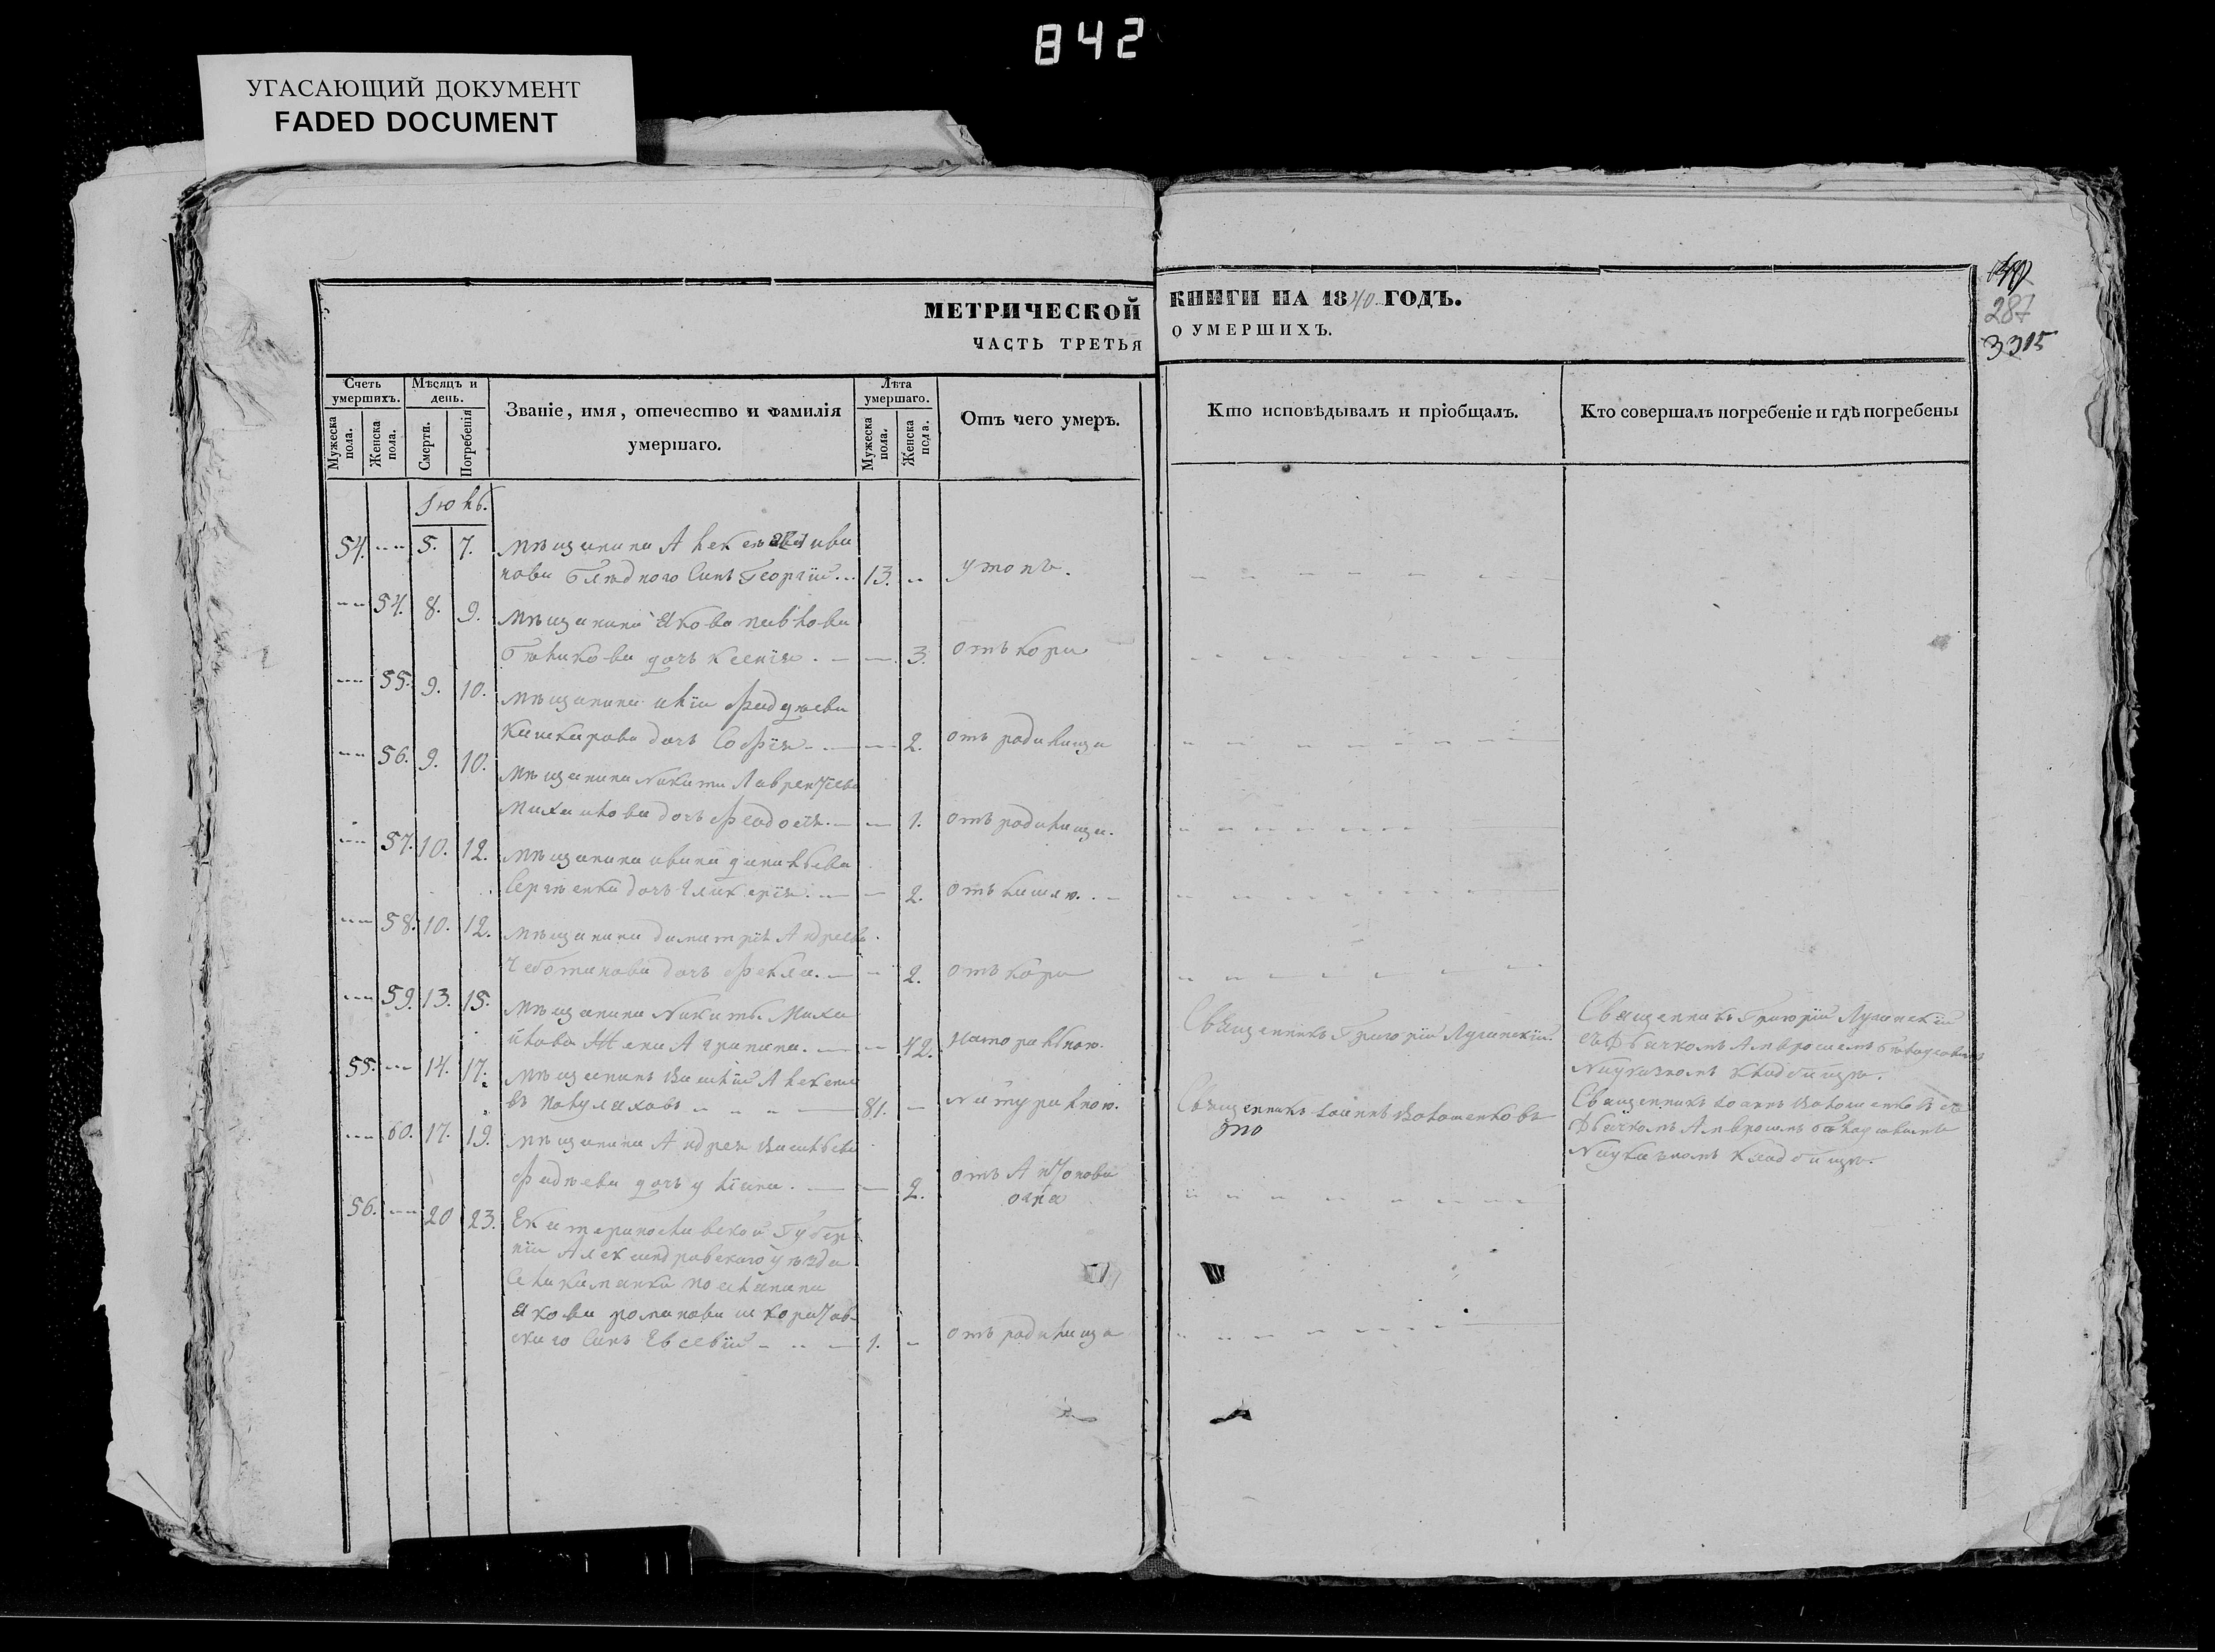 842
УГАСАЮЩИЙ ДОКУМЕНТ
FADED DOCUMENT
МЕТРИЧЕСКОЙ КНИГИ НА 1840 ГОДЪ.
ЧАСТЬ ТРЕТЬЯ О УМЕРШИХЪ.
287
3315
Счетъ умершихъ.
Мужеска пола.
Женска пола.
Мѣсяцъ и день.
Смерти.
Погребенія
Званіе, имя, отечество и фамилія
умершаго.
Лѣта умершаго.
Мужеска пола.
Женска пола.
Отъ чего умеръ.
Кто исповѣдывалъ и пріобщалъ.
Кто совершалъ погребеніе и гдѣ погребены
Іюль.
54. 5. 7. мѣщанина Алексѣя ива
нова Блѣдного Синъ Георгій 13. утопъ.
54. 8. 9. мѣщанина Якова павлова
дочь ксенія. 3. отъ кори
55. 9. 10. мѣщанина иліи фадѣева
дочь Софія 2. отъ родимца
56. 9. 10. мѣщанина Никити Лаврентіева
Михаилова дочь феодосія. 1. отъ родимца.
57. 10. 12. мѣщанина ивана
дочь Гликерія. 2. отъ кашлю.
58. 10. 12. мѣщанина димитрія Андреева
дочь фекла. 2. отъ кори
59. 13. 15. мѣщанина Никити Миха
йлова Жена Агрипина. 42. натуральною.
Священникъ Григорій Лучинскій.
Священникъ Григорій Лучинскій
съ дьячкомъ Амвросіемъ
кладбищѣ.
55. 14. 17. мѣщанинъ Василій Алексѣе
въ 81. натуральною.
Священникъ Іоаннъ Волошенковъ
Священникъ Іоаннъ Волошенковъ съ
дьячкомъ Амвросіемъ
кладбищѣ.
60. 17. 19. мѣщанина Андрея Васильева
фадѣева дочь уліана. 2. отъ Антонова
огня
56. 20 23. Екатеринославской Губер
ніи Александровскаго уѣзда
поселянина
Якова романова
скаго Синъ Евсевій 1. отъ родимца